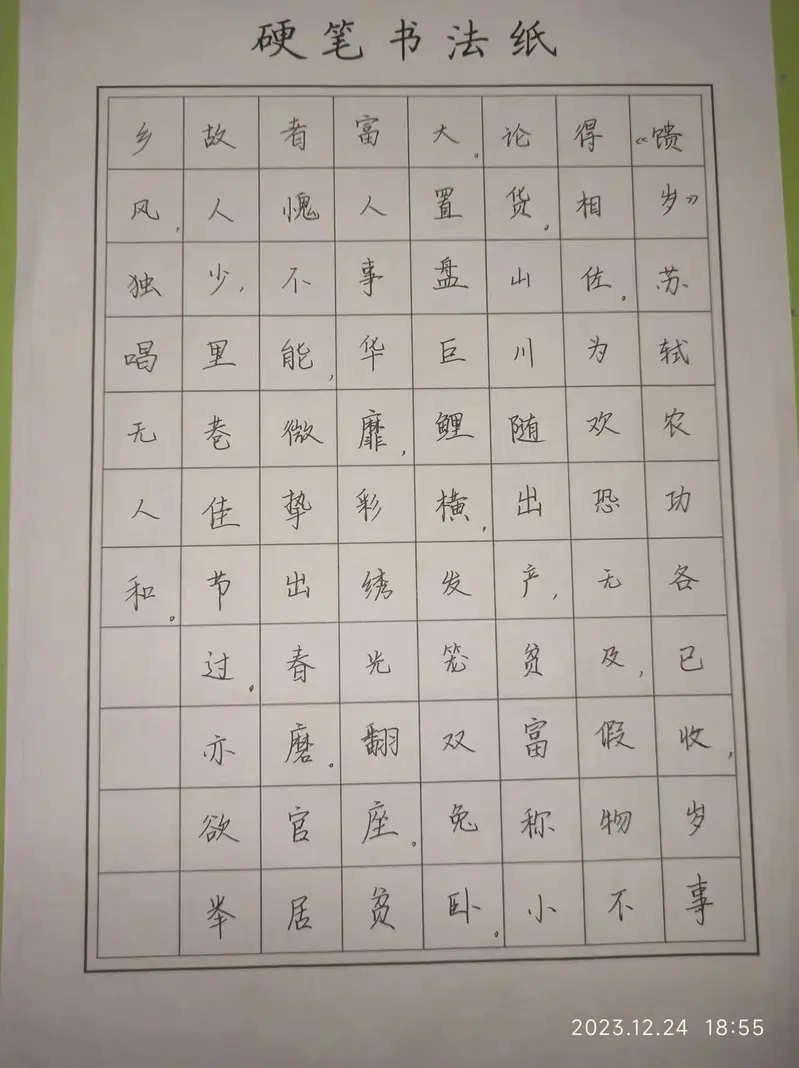 硬笔书法纸
《馈岁》苏轼农功各已收,岁事
得相佐。为欢恐无及,假物不
论货。山川随出产,贫富称小
大。置盘巨鲤横,发笼双兔卧。
富人事华靡,彩绣光翻座。贫
者愧不能,微挚出春磨。官居
故人少,里巷佳节过。亦欲举
乡风,独唱无人和。
2023.12.24 18:55